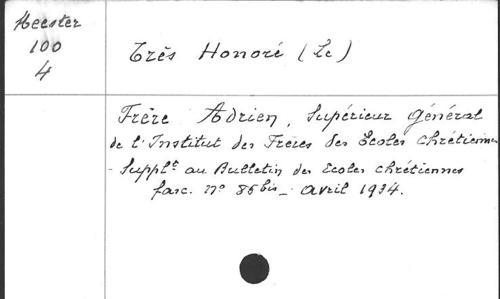 Meester
100
4
Très Honoré (Le)
Frère Adrien, Supérieur général
de l'Institut des Frères des Ecoles chrétiennes
- Supplt au Bulletin des Ecoles chrétiennes
fasc. n° 86bis - avril 1934.